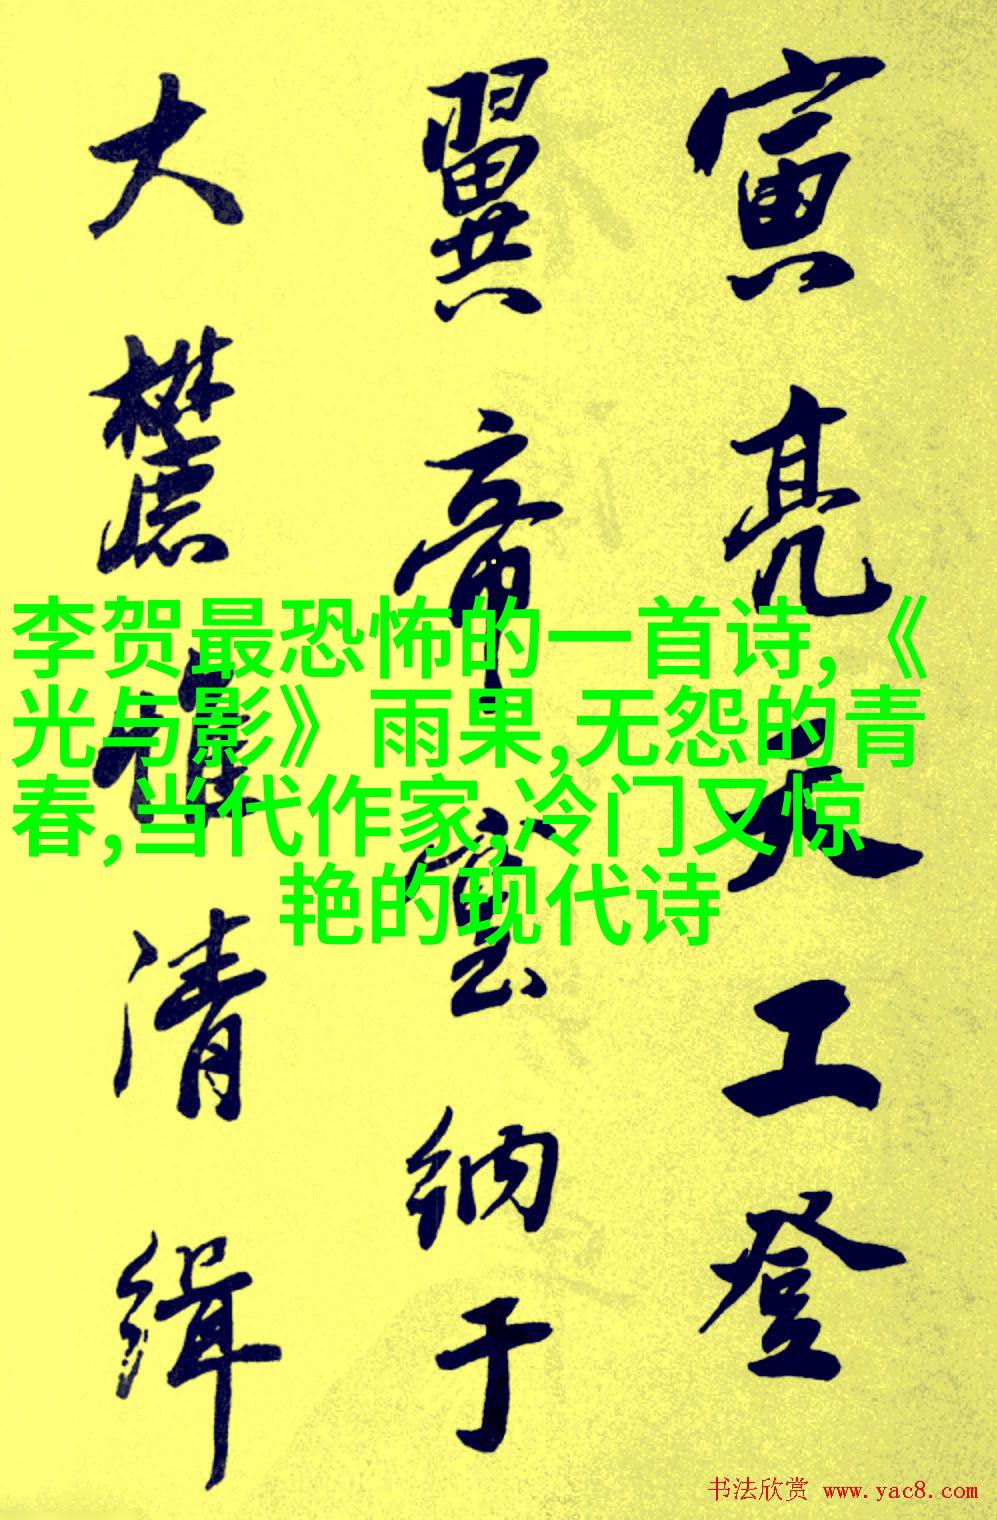 寅亮天工登
翼帝室納于
大麓惟清緝
李贺最恐怖的一首诗,《
光与影》雨果,无怨的青
春,当代作家,冷门又惊
艳的现代诗
书法欣赏 www.yac8.com